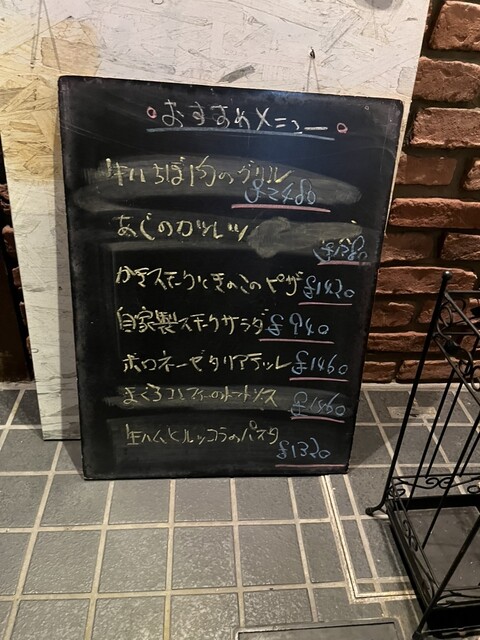 おすすめメニュー
牛いちぼ肉のグリル
£2480
あじのカツレツ
£1380
かきスモークときのこのピザ £1420
自家製スモークサラダ £940
ボロネーゼタリアテッレ £1460
まぐろコンフィーのトマトソース £1560
生ハムとルッコラのパスタ
£1320